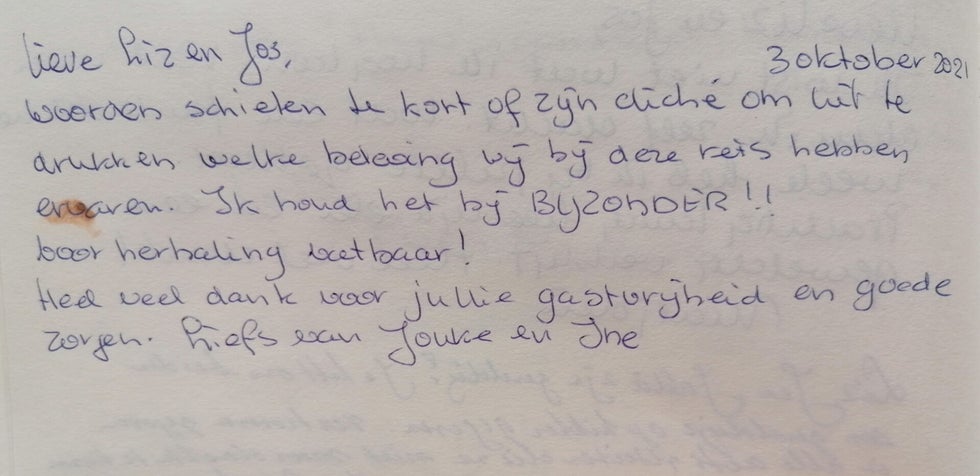 Lieve Liz en Jos,
3 oktober 2021
woorden schieten te kort of zijn cliché om uit te
drukken welke beleving wij bij deze reis hebben
ervaren. Ik houd het bij BIJZONDER!!
Voor herhaling vatbaar!
Heel veel dank voor jullie gastvrijheid en goede
zorgen. Liefs van Jouke en Ine